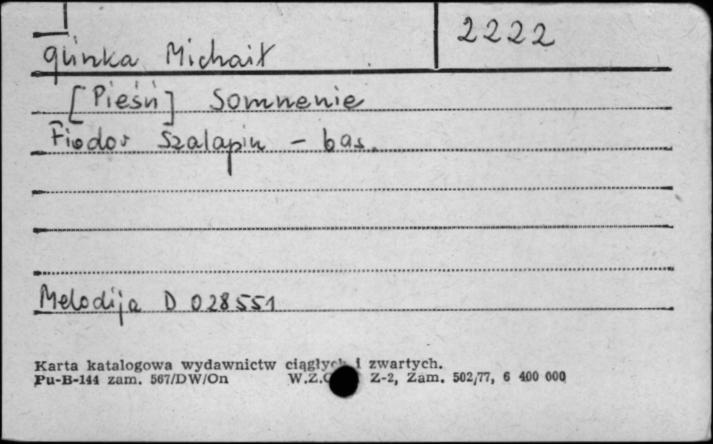 2222
Glinka Michaił
[Pieśń] Somnenie
Fiodor Szalapin - bas.
Melodija D 028551
Karta katalogowa wydawnictw ciągłych i zwartych.
Pu-B-144 zam. 567/DW/On W.Z. Z-2, Zam. 502/77, 6 400 000